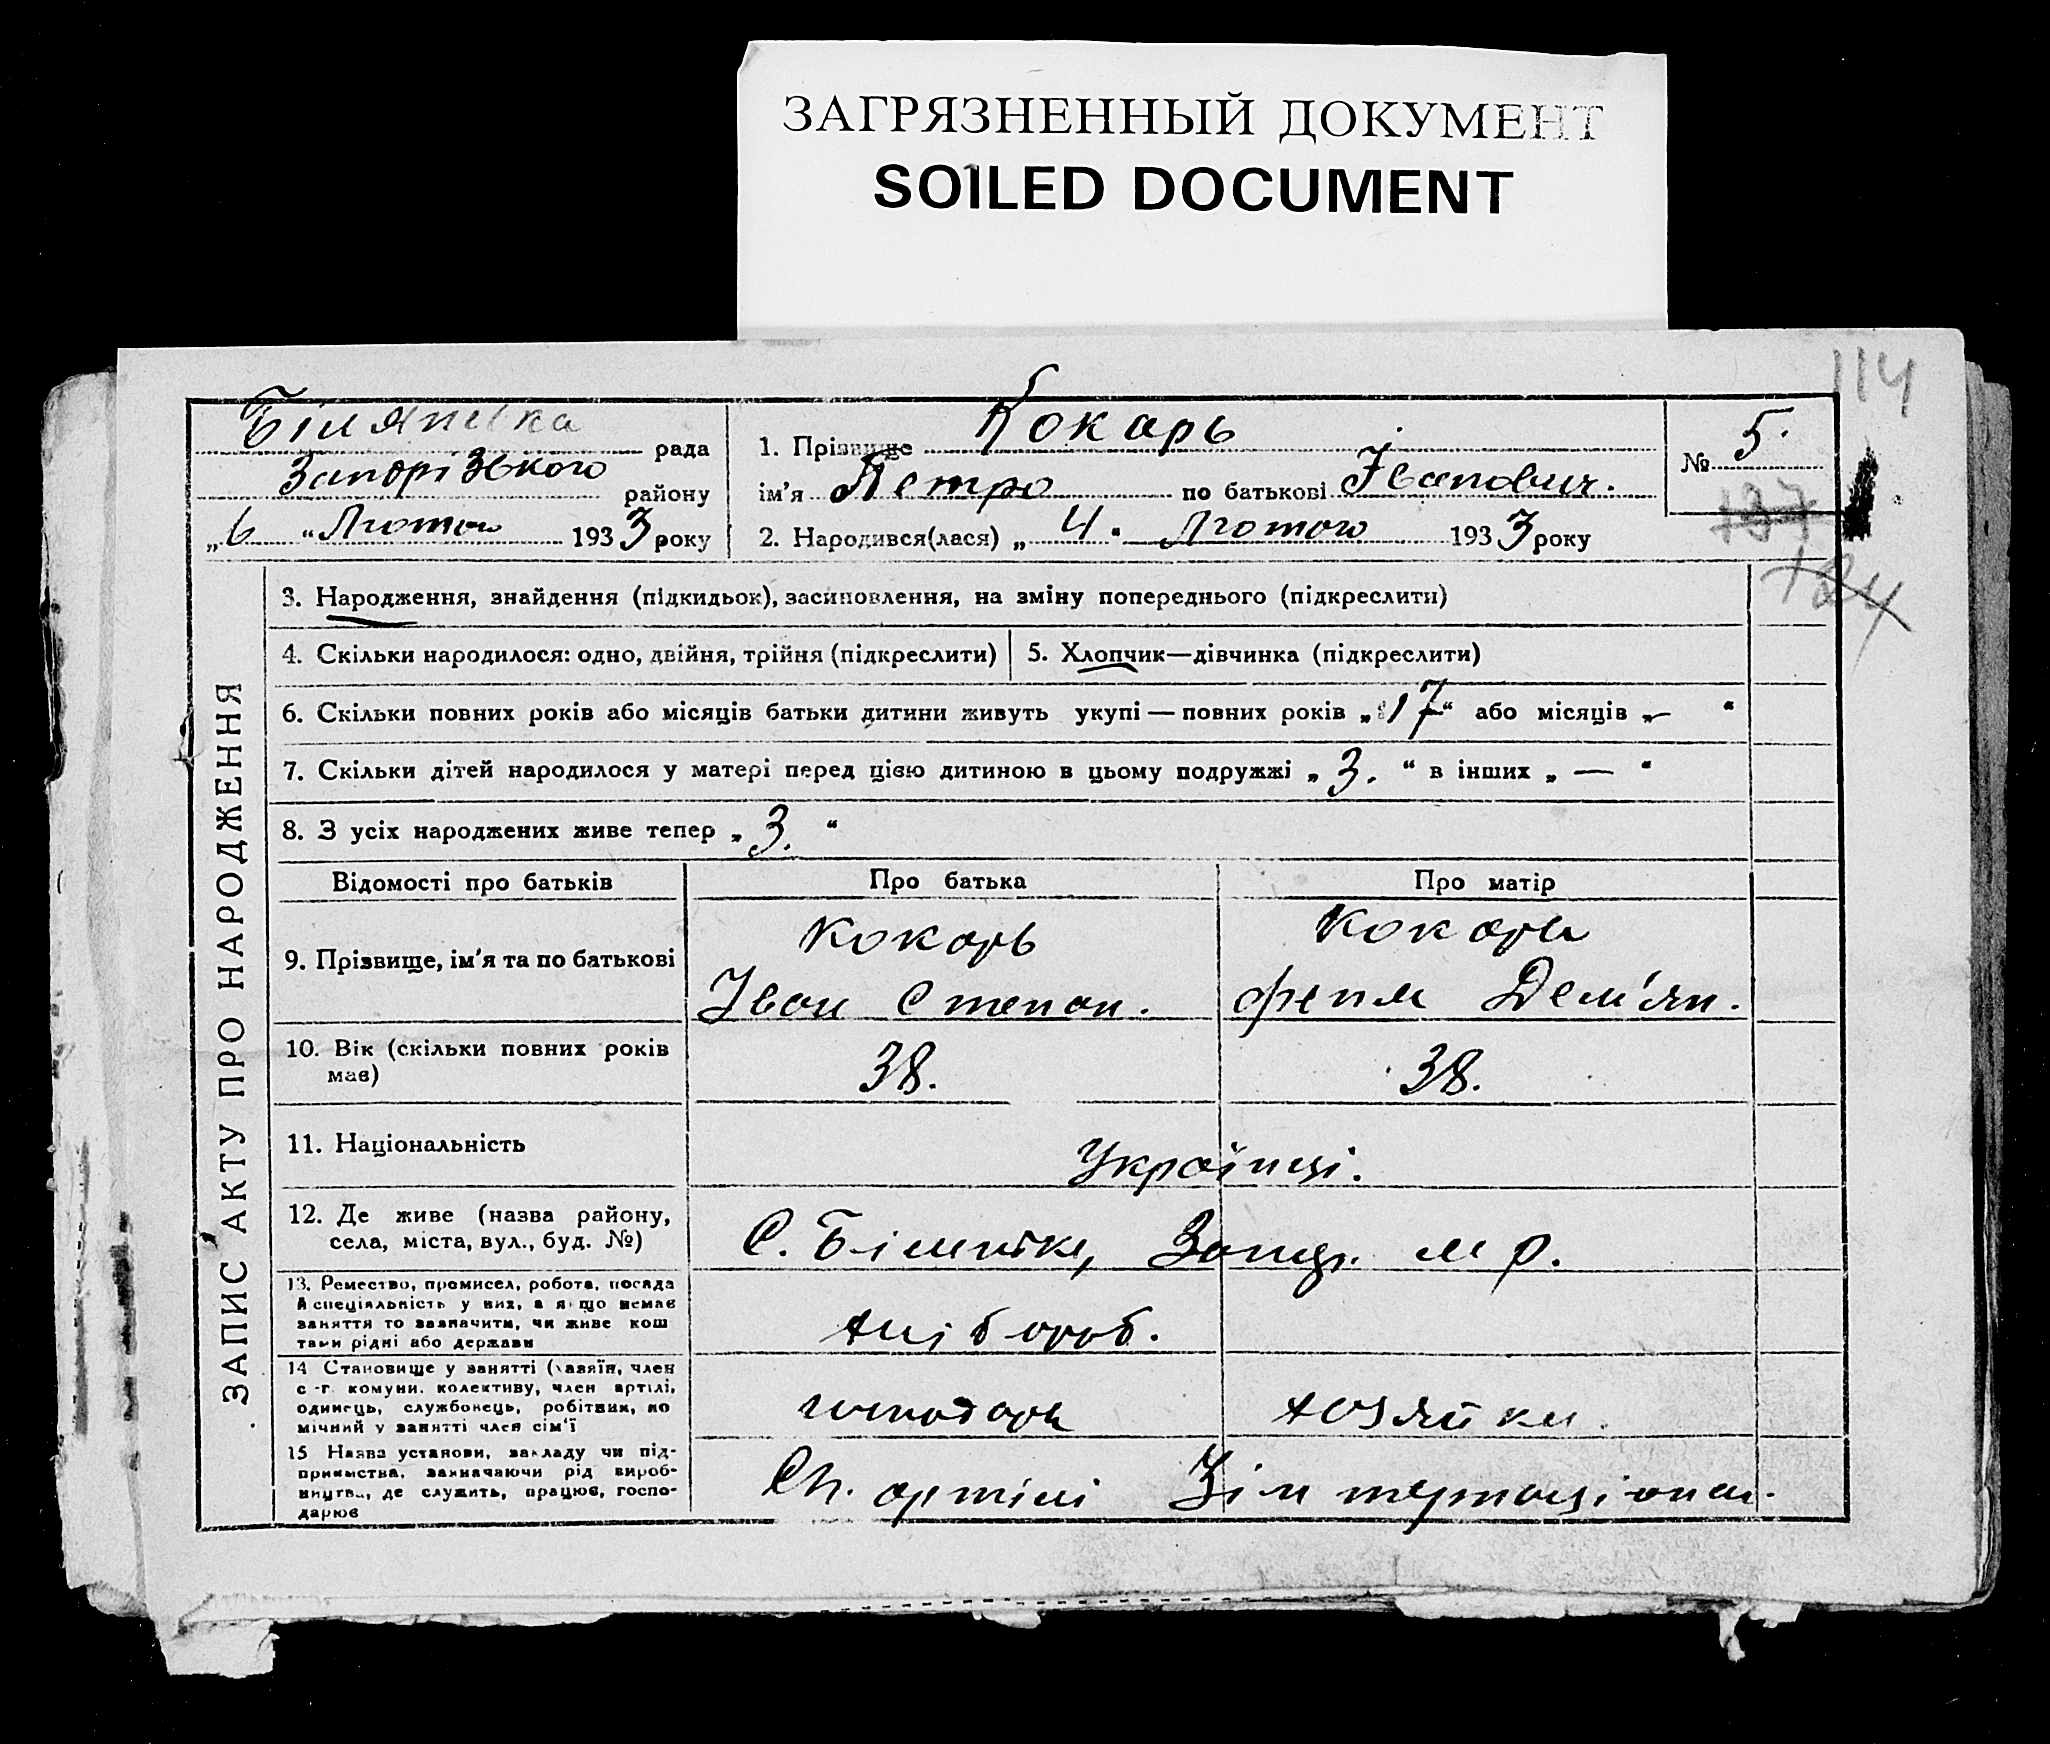 ЗАГРЯЗНЕННЫЙ ДОКУМЕНТ
SOILED DOCUMENT
114
Біляпівка рада
Запорізького району
„6 “ Лютого 1933 року
1. Прізвище Кокарь
ім'я Петро по батькові Іванович.
2. Народився(лася) „ 4 “ Лютого 1933 року
№ 5.
137
124
ЗАПИС АКТУ ПРО НАРОДЖЕННЯ
3. Народження, знайдення (підкидьок), засиновлення, на зміну попереднього (підкреслити)
4. Скільки народилося: одно, двійня, трійня (підкреслити)
5. Хлопчик—дівчинка (підкреслити)
6. Скільки повних років або місяців батьки дитини живуть укупі — повних років „17“ або місяців „— “
7. Скільки дітей народилося у матері перед цією дитиною в цьому подружжі „ 3. “ в інших „ — “
8. З усіх народжених живе тепер „ 3. “
Відомості про батьків
Про батька
Про матір
9. Прізвище, ім'я та по батькові
Кокарь
Іван Степан.
Кокарь
Дем'ян.
10. Вік (скільки повних років
має)
38.
38.
11. Національність
Українці.
12. Де живе (назва району,
села, міста, вул., буд. №)
С. р.
13. Ремество, промисел, робота, посада
й спеціяльність у них, а якщо немає
заняття то зазначити, чи живе кош
тами рідні або держави
хлібороб.
14 Становище у занятті (хазяїн, член
с.-г. комуни, колективу, член артілі,
одинець, службовець, робітник, по
мічний у занятті член сім'ї
господарь
хозяйка
15 Назва установи, закладу чи під-
приємства, зазначаючи рід вироб-
ництва, де служить, працює, госпо-
дарює
артілі